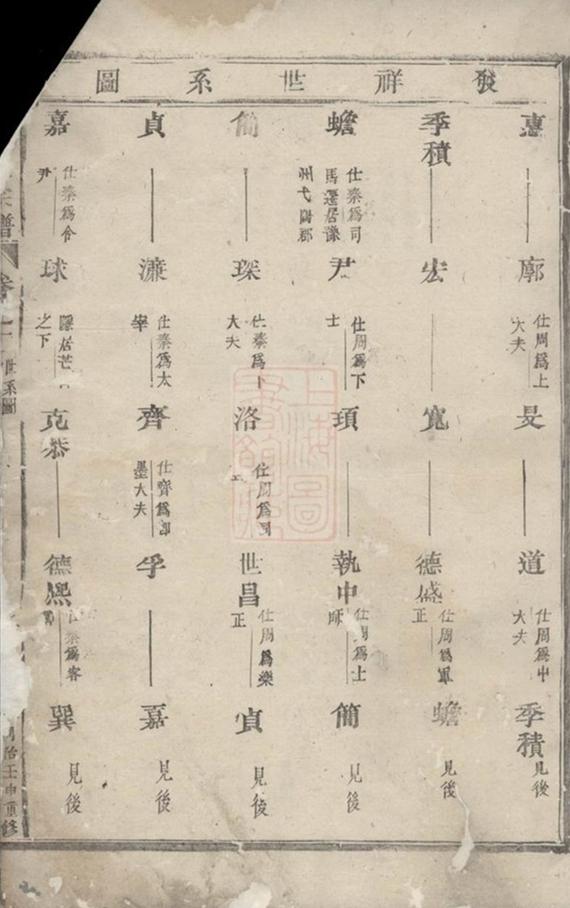 發祥世系圖
惠
廓 仕周爲上大夫
旻
道 仕周爲中大夫
季積 見後
季積
宏
寬
德盛 仕周爲軍正
蟾 見後
蟾 仕秦爲司馬遷居豫州弋陽郡
尹 仕周爲下士
頊
執中 仕周爲上師
簡 見後
簡
琛 仕秦爲上大夫
洛 仕周爲
世昌 仕周爲樂正
貞 見後
貞
濂 仕秦爲太宰
齊 仕齊爲卽墨大夫
孚
嘉 見後
嘉 仕秦爲令尹
球 隱居芒之下
克恭
德熙 仕秦爲客
巽 見後
譜
卷一
世系圖
同治壬申重修
上海圖書館藏